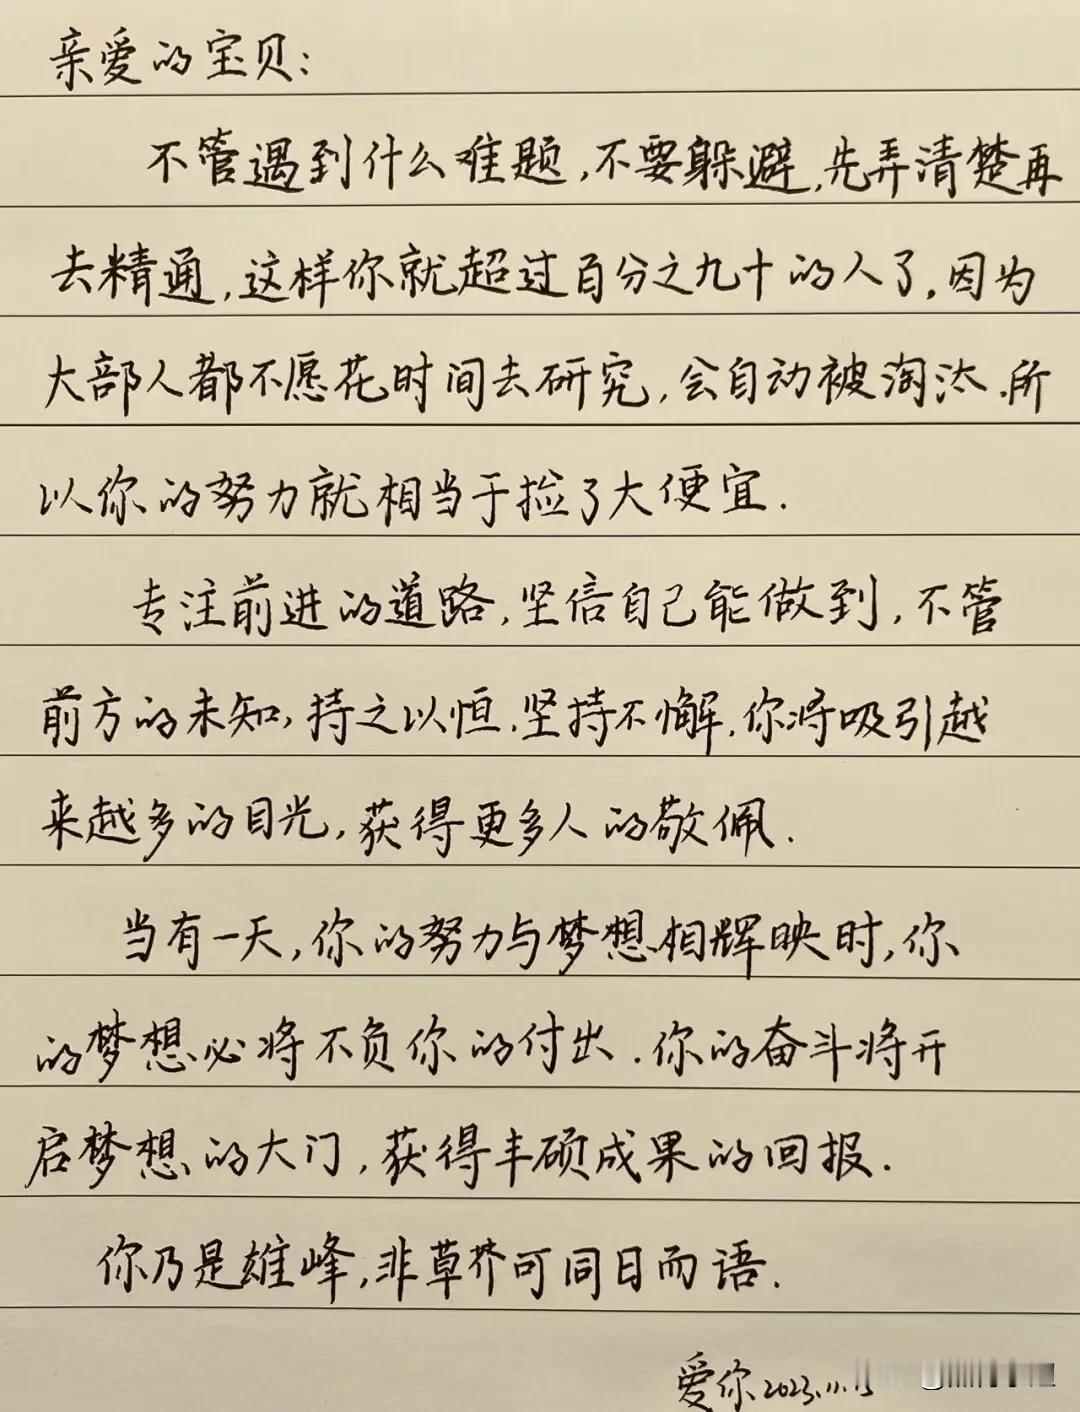 亲爱的宝贝:
不管遇到什么难题,不要躲避,先弄清楚再
去精通,这样你就超过百分之九十的人了,因为
大部人都不愿花时间去研究,会自动被淘汰.所
以你的努力就相当于捡了大便宜.
专注前进的道路,坚信自己能做到,不管
前方的未知,持之以恒.坚持不懈.你将吸引越
来越多的目光,获得更多人的敬佩.
当有一天,你的努力与梦想相辉映时,你
的梦想必将不负你的付出.你的奋斗将开
启梦想的大门,获得丰硕成果的回报.
你乃是雄峰,非草芥可同日而语.
爱你2023.11.